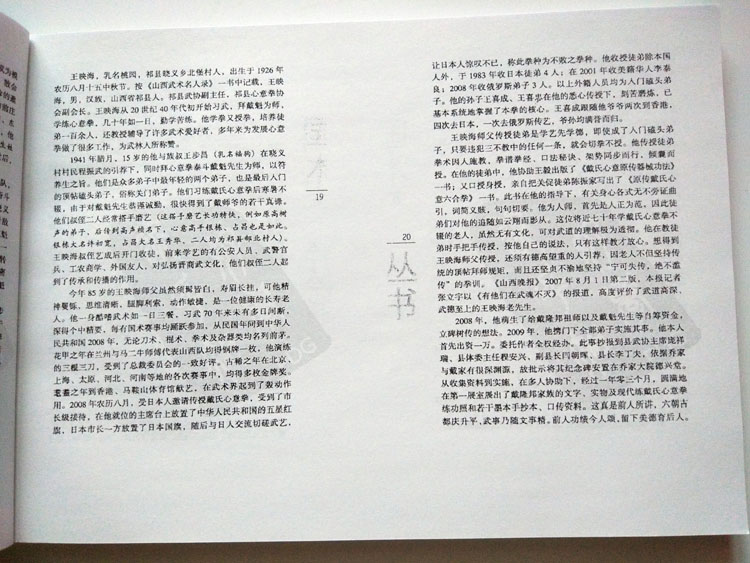 王映海，乳名桃园，祁县晓义乡北堡村人，出生于1926年
农历八月十五中秋节。按《山西武术名人录》一书中记载，王映
海，男，汉族，山西省祁县人。祁县武协副主任，祁县心意拳协
会副会长。王映海从20世纪40年代初开始习武，拜戴魁为师，
学练心意拳，几十年如一日，勤学苦练。他学拳又授拳，培养徒
弟一百余人，还教授辅导了许多武术爱好者，多年来为发展心意
拳做了很多工作，为武林人所称赞。
1941年腊月，15岁的他与族叔王步昌（乳名福狗）在晓义
村村民程振武的引荐下，同时拜心意拳泰斗戴魁先生为师，以符
养生之旨。他们是众多弟子中最年轻的两个弟子，也是最后入门
的顶帖磕头弟子，俗称关门弟子。他们习练戴氏心意拳后寒暑不
辍，由于对戴魁先生恭谨诚勤，很快得到了戴师爷的若干真谛。
他们叔侄二人经常搭手磨艺（这搭手磨艺长功特快，例如原高树
声的弟子，后传到高声桢名下，心意高手根栋、占昌也是如此。
根栋大名许初宽，占昌大名王秀华，二人均为祁县郜北村人）。
王映海叔侄艺成后开门收徒，前来学艺的有公安人员、武警官
兵、工农商学、外国友人，对弘扬晋商武文化，他们叔侄二人起到
了传承和传播的作用。
今年85岁的王映海师父虽然须鬓皆白，寿眉长挂，可他精
神矍铄、思维清晰，腿脚利索，动作敏捷，是一位健康的长寿老
人。他一身酷嗜武术如一日三餐，习武70年来未有多日间断，
深得个中精要，每有国术赛事均踊跃参加，从民国年间到中华人
民共和国2008年，无论刀术、棍术、拳术及杂器类均名列前茅。
花甲之年在兰州与马二牛师傅代表山西队均得铜牌一枚，他演练
的三棍三刀，受到了总裁委员会的一致好评。古稀之年在北京、
上海、太原、河北、河南等地的各次赛事中，均得多枚金牌奖。
耄耋之年到香港、马鞍山体育馆献艺，在武术界起到了轰动作
用。2008年农历八月，受日本人邀请传授戴氏心意拳，受到了市
长级接待，在他就位的主席台上放置了中华人民共和国的五星红
旗，日本市长一方放置了日本国旗，随后与日人交流切磋武艺，
国术
19
20
丛书
让日本人惊叹不已，称此拳种为不败之拳种。他收授徒弟除本国
人外，于1983年收日本徒弟4人；在2001年收美籍华人李泰
良；2008年收俄罗斯弟子3人。以上外籍人员均为入门磕头弟
子。他的孙子王喜成、王喜忠在他的悉心传授下，刻苦磨炼，已
基本系统地掌握了本拳的核心。王喜成跟随他爷爷两次到香港，
四次去日本，一次去俄罗斯传艺，爷孙均满誉而归。
王映海师父传授徒弟是学艺先学德，即使成了入门磕头弟
子，只要违犯三不教中的任何一条，就会切拳不授。他传授徒弟
拳术因人施教，拳谱拳经、口法秘诀、架势同步而行，倾囊而
授。在他的徒弟中，他协助王毅出版了《戴氏心意原传器械功法》
一书；又口授身授，亲自把关促徒弟陈振家写出了《原传戴氏心
意六合拳》一书。此书在他的指导下，有关身心各式无不旁证曲
引，词简义赅，句句切要。他为人师，首先处人正为范，因此徒
弟们对他的追随如云翔而影从。这位将近七十年学戴氏心意拳不
辍的老人，虽然无有文化，可对武道的理解极为透彻。他在教徒
弟时手把手传授，按他自己的说法，只有这样教才放心。想得到
王映海师父传授，还须有德高望重的人引荐，因老人不但坚持传
统的顶帖拜师规矩，而且还坚贞不渝地坚持“宁可失传，绝不滥
传”的拳训。《山西晚报》2007年8月1日第二版，本报记者
张立宇以《有他们在武魂不灭》的报道，高度评价了武道高深、
武德至上的王映海老先生。
2008年，他萌生了给戴隆邦祖师以及戴魁先生等自筹资金，
立碑树传的想法。2009年，他携门下全部弟子实施其事。他本人
首先出资一万。委托作者全权经办。此事抄报到县武协主席瑰祥
瑞、县体委主任程安兴，副县长闫朝晖、县长李丁夫，依据乔家
与戴家有很深渊源，故批示将其纪念碑安置在乔家大院德兴堂。
从收集资料到实施，在多人协助下，经过一年零三个月，圆满地
在第一展室展出了戴隆邦家族的文字、实物及现代练戴氏心意拳
练功照和若干墨本手抄本、口传资料。这真是前人所讲，六朝古
都庆升平，武事乃随文事精。前人功绩今人颂，留下美德育后人。